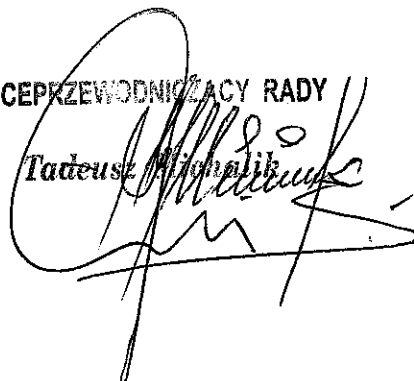 CEPRZEWODNICZĄCY RADY
Tadeusz Michalik